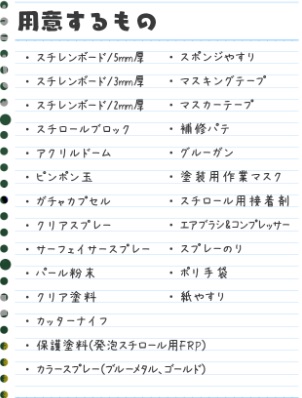 用意するもの
・スチレンボード/5mm厚
・スチレンボード/3mm厚
・スチレンボード/2mm厚
・スチロールブロック
・アクリルドーム
・ピンポン玉
・ガチャカプセル
・クリアスプレー
・サーフェイサースプレー
・パール粉末
・クリア塗料
・カッターナイフ
・保護塗料(発泡スチロール用FRP)
・カラースプレー(ブルーメタル、ゴールド)
・スポンジやすり
・マスキングテープ
・マスカーテープ
・補修パテ
・グルーガン
・塗装用作業マスク
・スチロール用接着剤
・エアブラシ&コンプレッサー
・スプレーのり
・ポリ手袋
・紙やすり